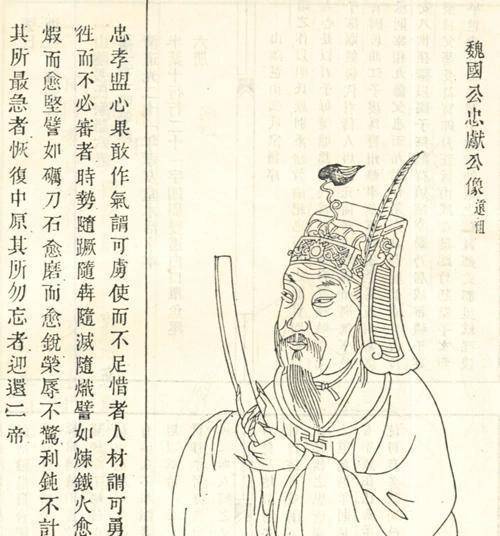 魏國公忠獻公像 遠祖
忠孝盟心果敢作氣謂可虜使而不足惜者人材謂可勇
徃而不必審者時勢隨蹶隨犇隨滅隨熾譬如煉鐵火愈
煆而愈堅譬如礪刀石愈磨而愈銳榮辱不驚利鈍不計
其所最急者恢復中原其所勿忘者迎還二帝